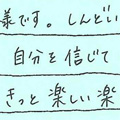 様です。しんどい
自分を信じて
きっと楽しい楽